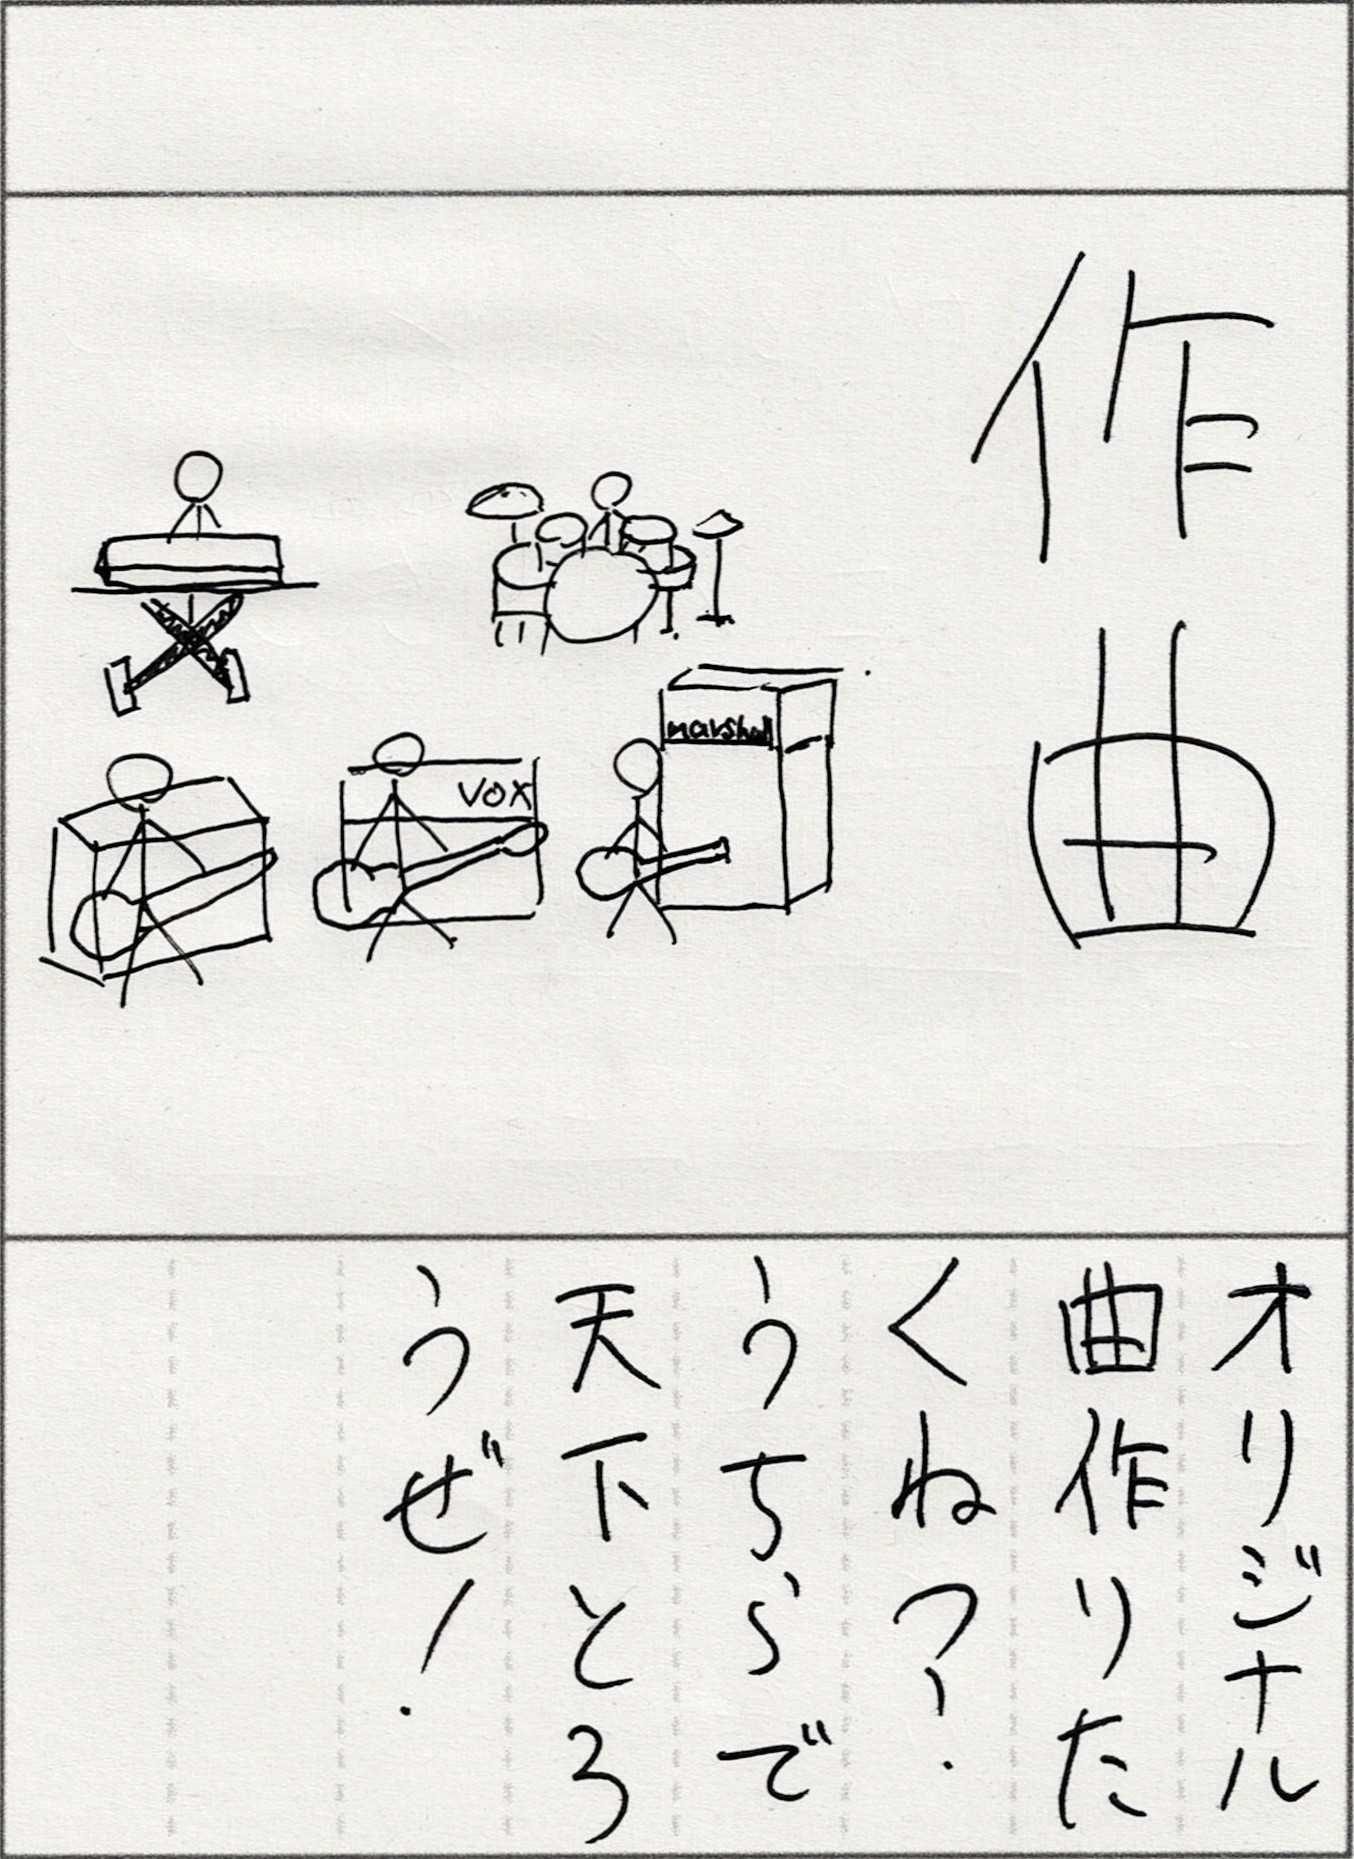 作曲
marshall
VOX
オリジナル
曲作りた
くね？
うちらで
天下とろ
うぜ！